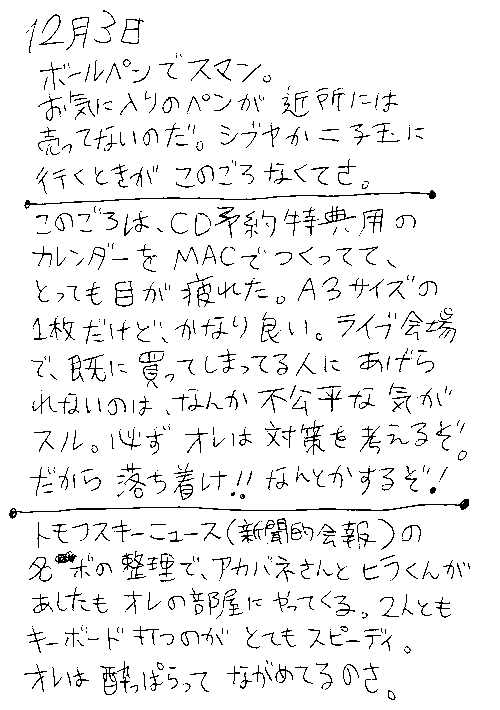 12月3日
ボールペンでスマン。
お気に入りのペンが近所には
売ってないのだ。シブヤか二子玉に
行くときがこのごろなくてさ。
このごろは、CD予約特典用の
カレンダーをMACでつくってて、
とっても目が疲れた。A3サイズの
1枚だけど、かなり良い。ライブ会場
で、既に買ってしまってる人にあげら
れないのは、なんか不公平な気が
スル。必ずオレは対策を考えるぞ。
だから落ち着け!!なんとかするぞ!
トモフスキーニュース(新聞的会報)の
名ボの整理で、アカバネさんとヒラくんが
あしたもオレの部屋にやってくる。2人とも
キーボード打つのがとてもスピーディ。
オレは酔っぱらってながめてるのさ。